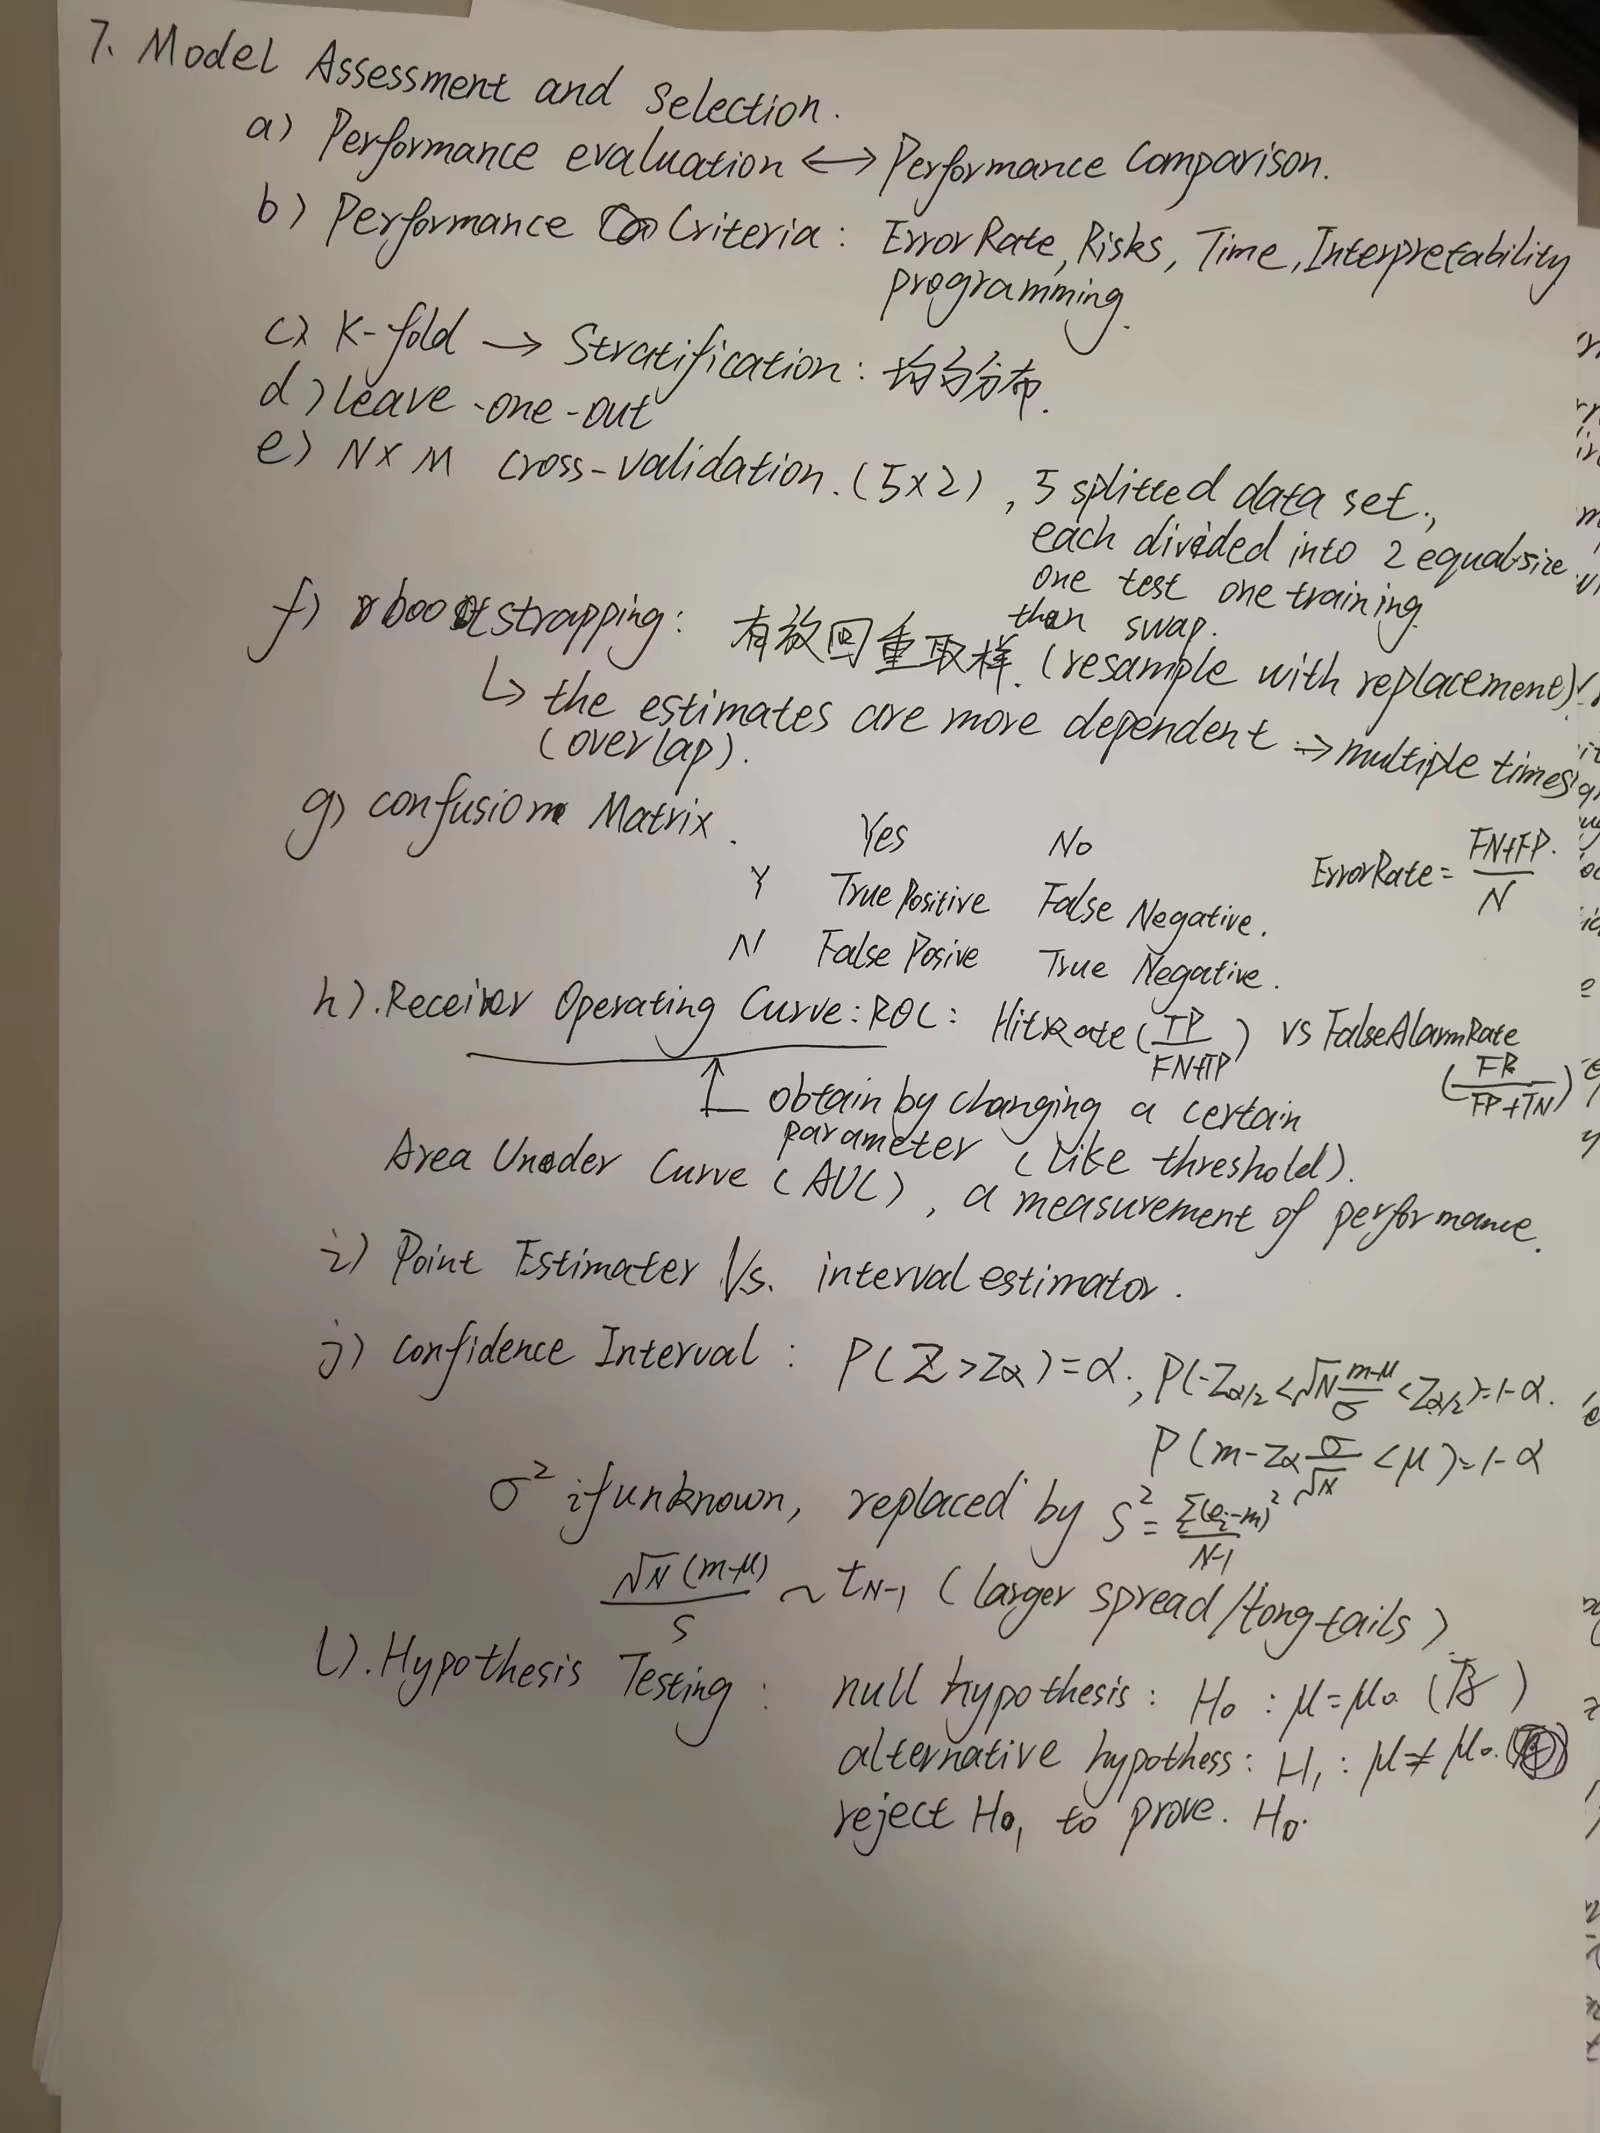 7. Model Assessment and Selection.
a) Performance evaluation ↔ Performance Comparison.
b) Performance Criteria: Error Rate, Risks, Time, Interpretability
programming.
c) K-fold → Stratification: 均匀分布.
d) leave-one-out
e) N×M cross-validation. (5×2), 5 splitted data set.,
each divided into 2 equal-size
one test one training
then swap.
f) bootstrapping: 有放回重取样. (resample with replacement)
↳ the estimates are more dependent → multiple times
(overlap).
g) confusion Matrix.
Yes No
Y True Positive False Negative.
N False Posive True Negative.
Error Rate = FN+FP / N
h). Receiver Operating Curve: ROC: Hit Rate (TP / FN+TP) vs False Alarm Rate
(FP / FP+TN)
obtain by changing a certain
parameter (like threshold).
Area Under Curve (AUC), a measurement of performance.
i) Point Estimater Vs. interval estimator.
j) Confidence Interval: P(Z>Zα)=α., P(-Zα/2 < √N (m-μ)/σ < Zα/2)=1-α.
P(m-Zα σ/√N < μ)=1-α
σ² if unknown, replaced by S² = Σ(ei-m)² / N-1
√N(m-μ) / S ~ tN-1 (larger spread/long tails)
l). Hypothesis Testing: null hypothesis: H0: μ=μ0. ( )
alternative hypothess: H1: μ≠μ0.
reject H0, to prove. H0.